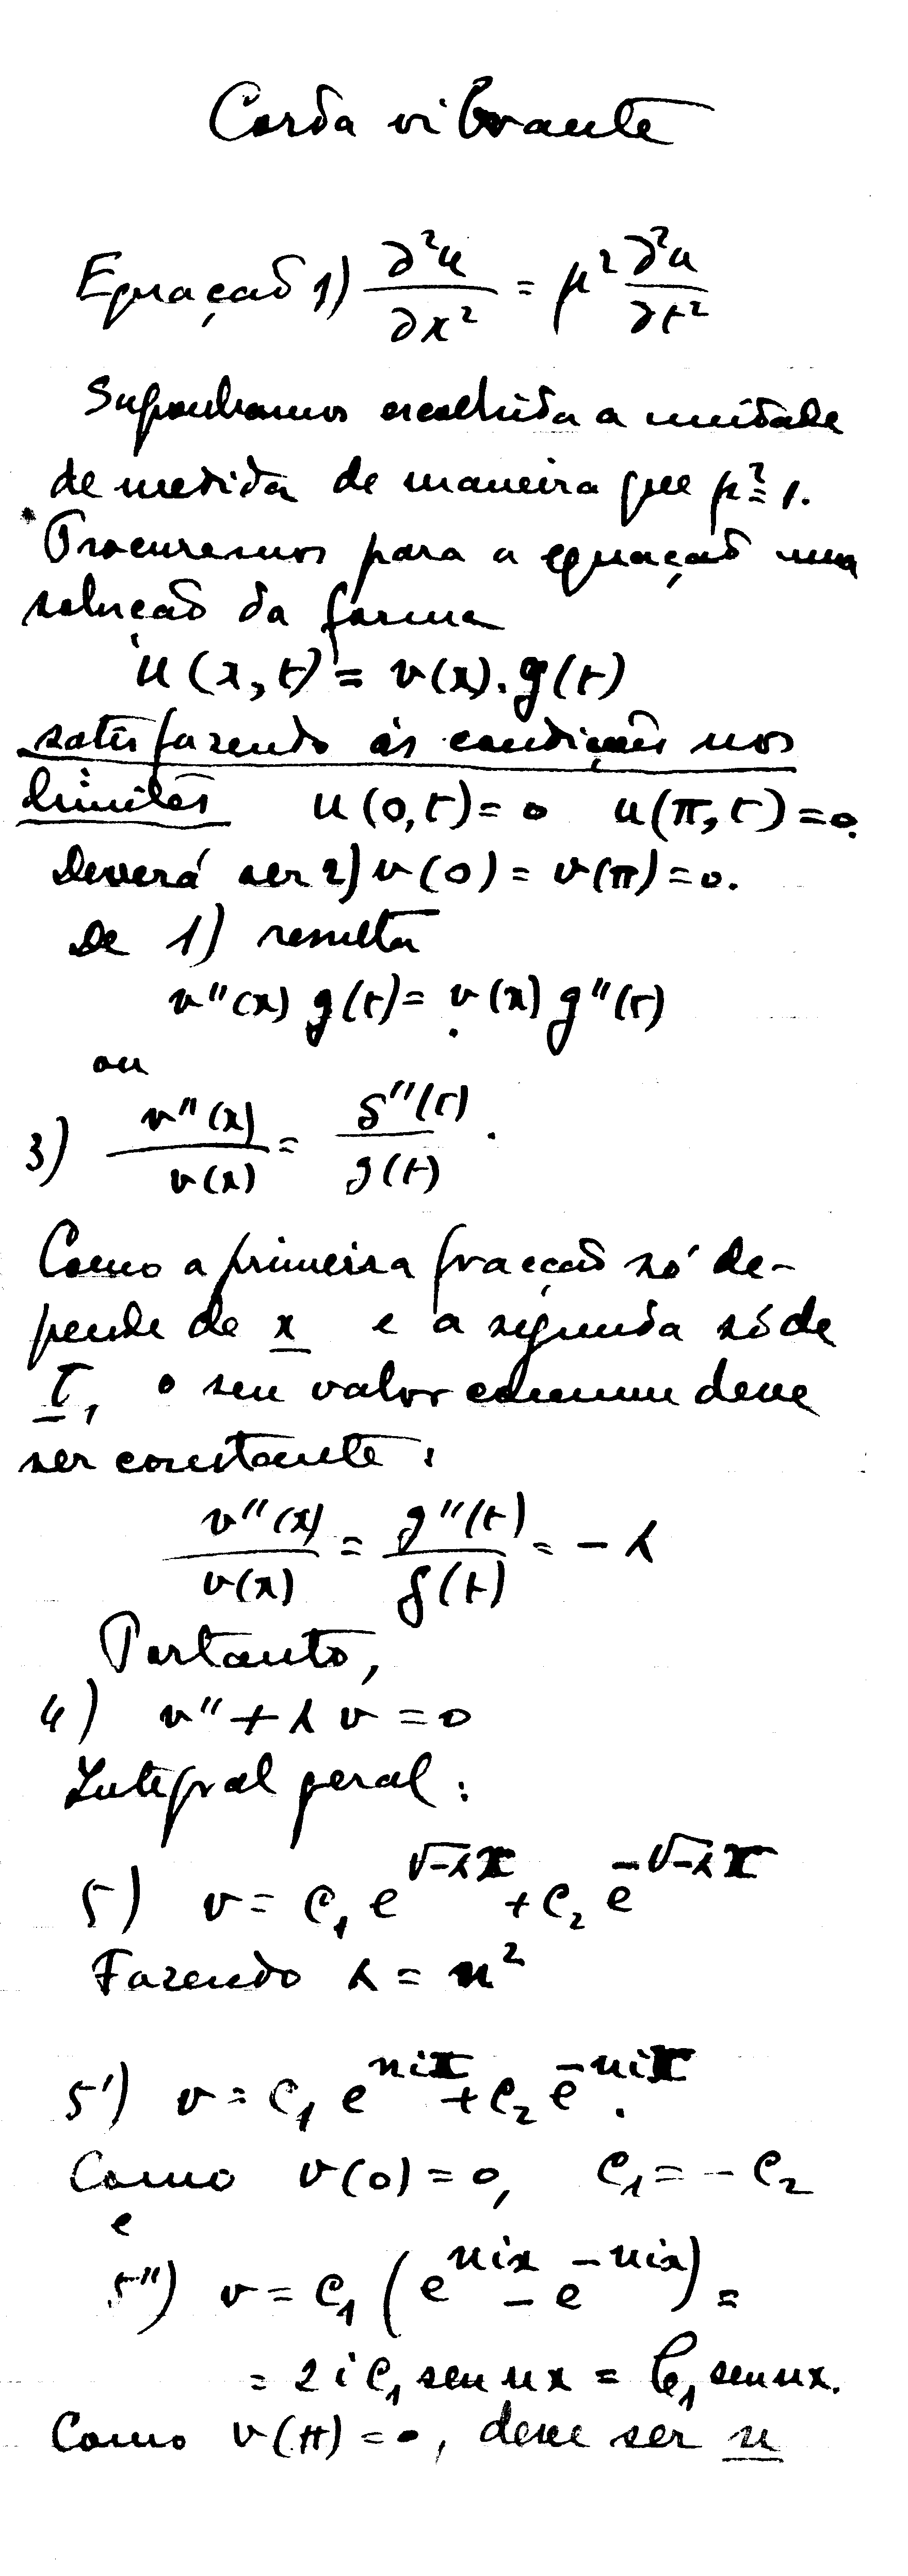 Corda vibrante
Equação 1) ∂²u/∂x² = μ² ∂²u/∂t²
Suponhamos escolhida a unidade
de medida de maneira que μ² = 1.
Procuremos para a equação uma
solução da forma
u(x,t) = v(x).g(t)
satisfazendo às condições nos
limites u(0,t) = 0 u(π,t) = 0.
Deverá ser 2) v(0) = v(π) = 0.
De 1) resulta
v''(x) g(t) = v(x) g''(t)
ou
3) v''(x)/v(x) = g''(t)/g(t).
Como a primeira fracção só de-
pende de x e a segunda só de
t, o seu valor comum deve
ser constante:
v''(x)/v(x) = g''(t)/g(t) = - λ
Portanto,
4) v'' + λ v = 0
Integral geral:
5) v = C₁ e^(√-λ x) + C₂ e^(-√-λ x)
Fazendo λ = n²
5') v = C₁ e^(nix) + C₂ e^(-nix).
Como v(0) = 0, C₁ = - C₂
e
5'') v = C₁ (e^(nix) - e^(-nix)) =
= 2 i C₁ sen nx = C₁ sen nx.
Como v(π) = 0, deve ser n